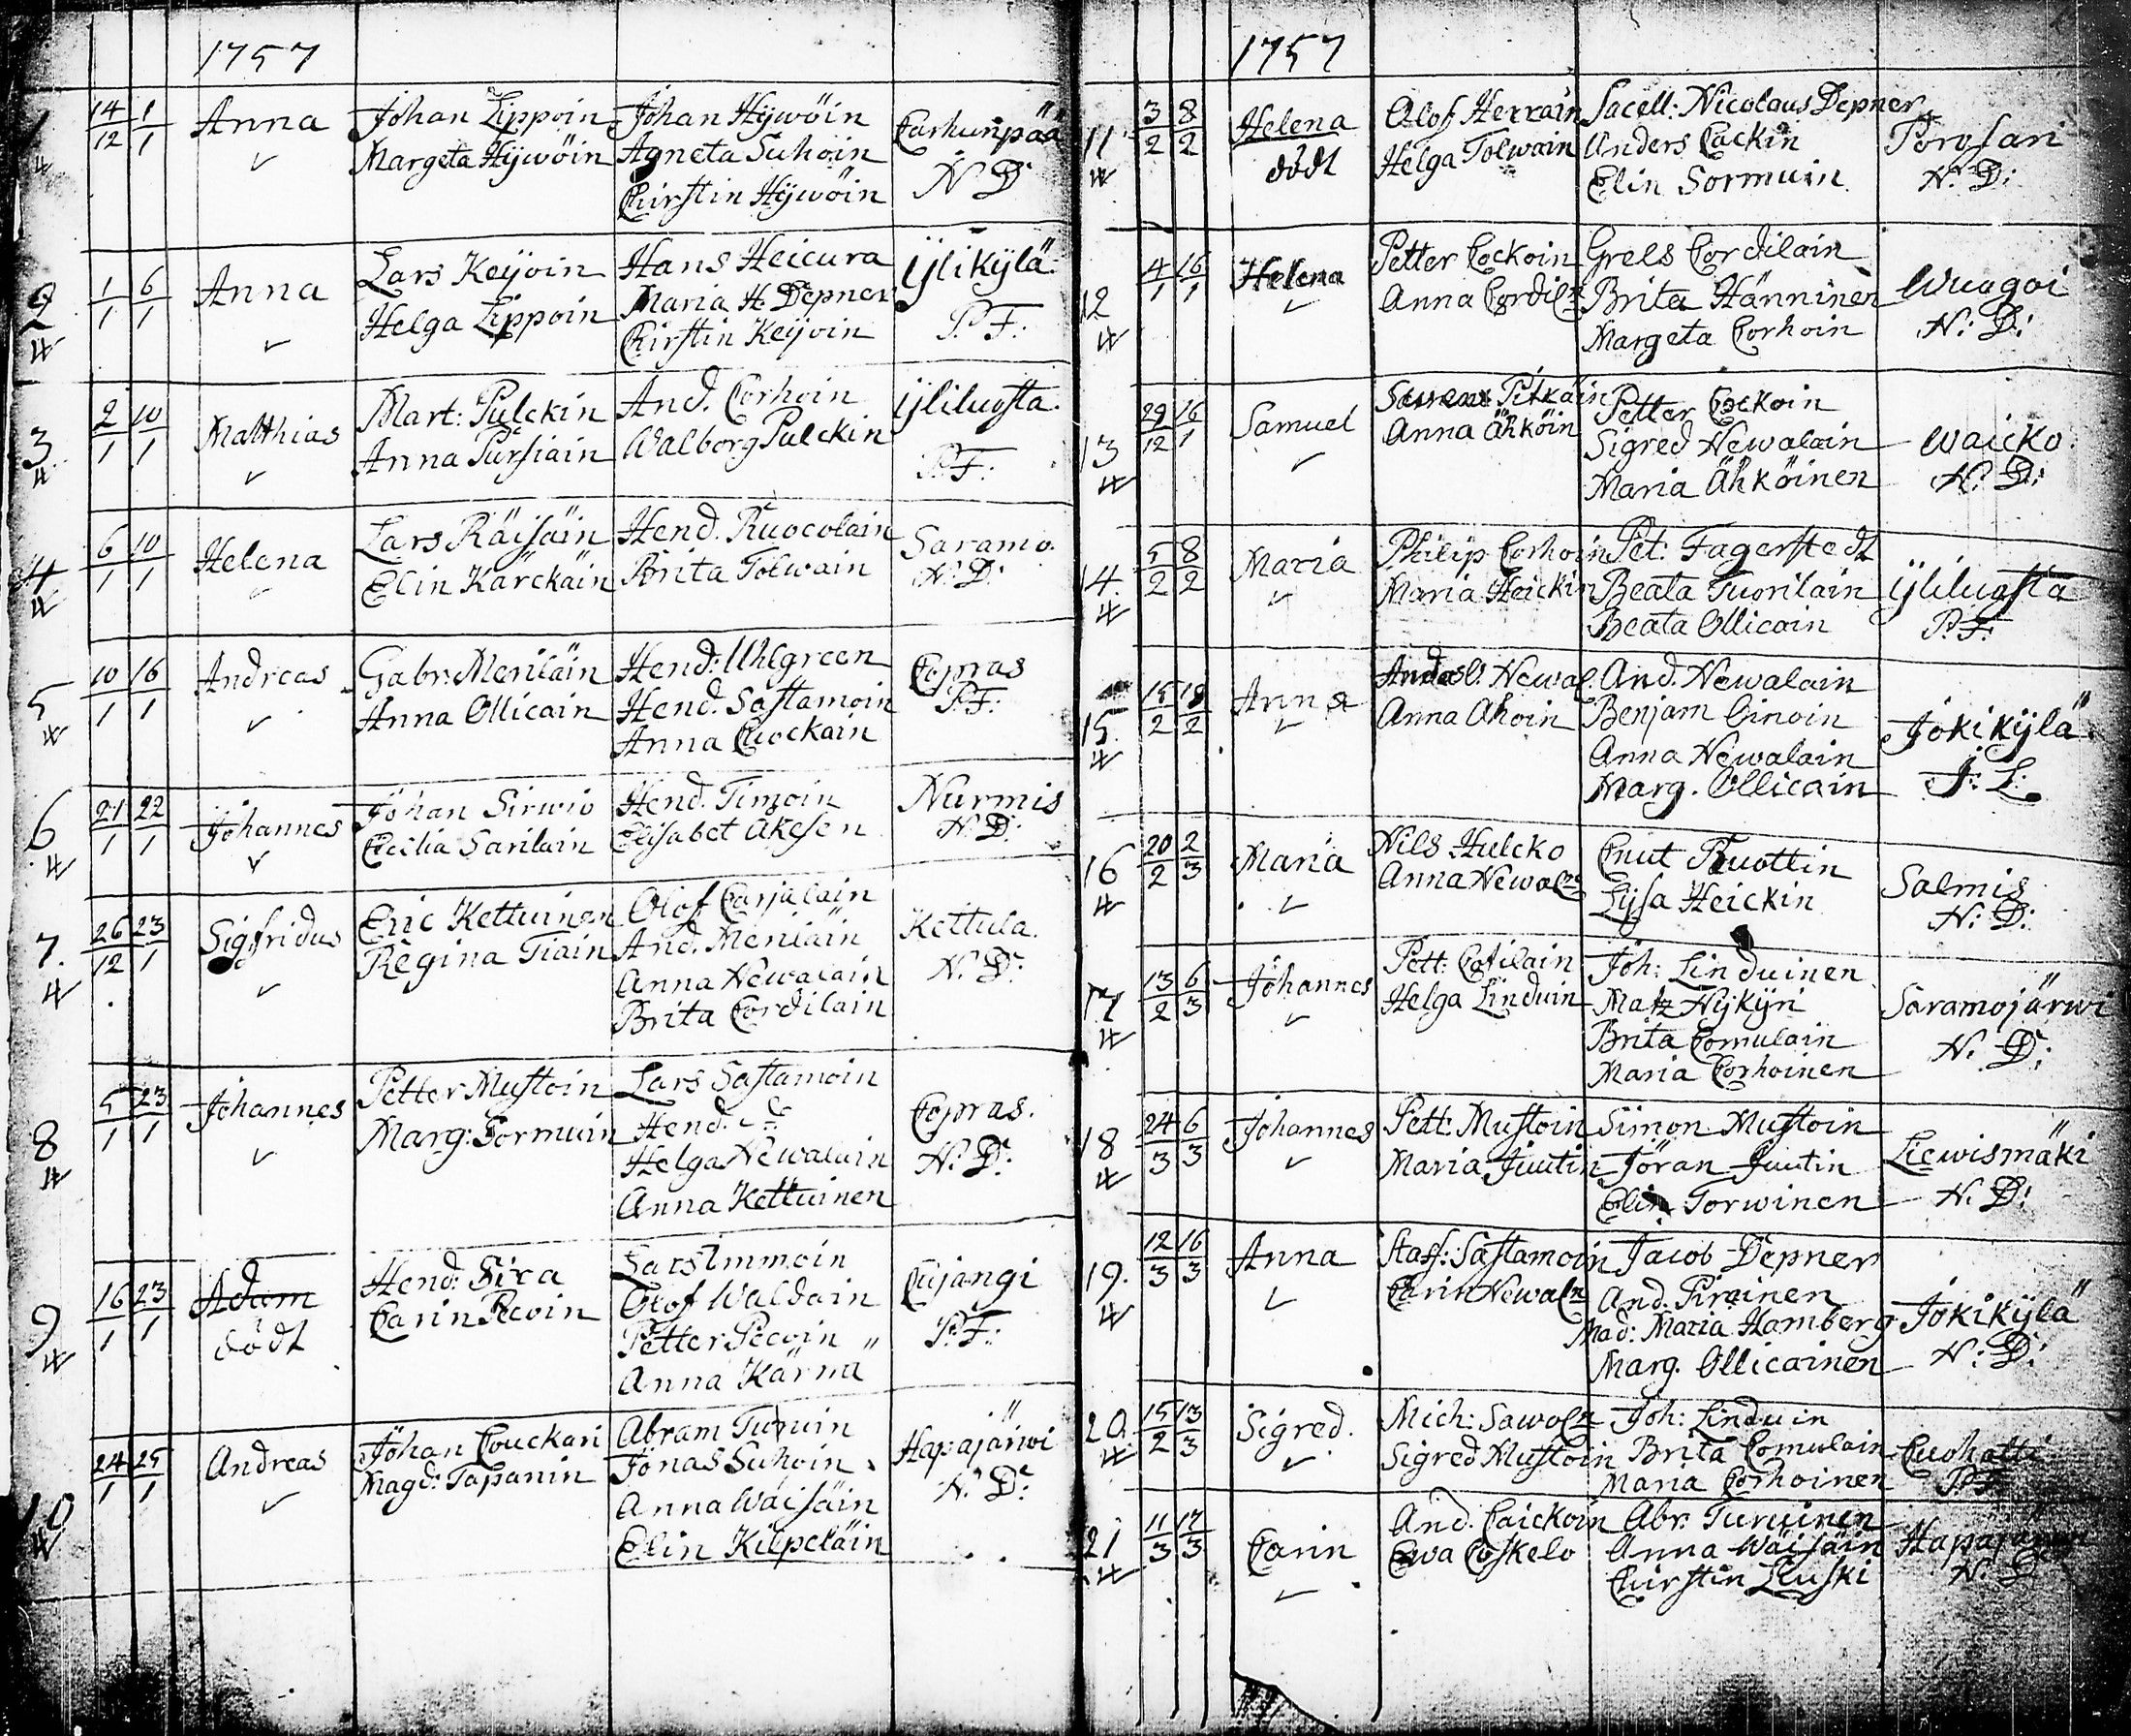 1757
1 14/12 1/1 Anna Johan Lippoin Johan Hÿwöin Carhunpää
Margeta Hÿwöin Agneta Suhoin N D
Chirstin Hÿwöin
2 1/1 6/1 Anna Lars Keÿoin Hans Heicura ÿlikÿlä
Helga Lippoin Maria H Depner P. F.
Chirstin Keÿoin
3 2/1 10/1 Matthias Mart: Pulckin And. Corhoin ÿliluosta.
Anna Pursiain Walborg Pulckin P. F.
4 6/1 10/1 Helena Lars Räisäin Hend. Ruocolain Saramo.
Elin Kärckäin Brita Tolwain N. D.
5 10/1 16/1 Andreas Gabr. Meriläin Hend: Uhlgreen Copras
Anna Ollicain Hend. Sastamoin P. F.
Anna Cuockain
6 21/1 22/1 Johannes Johan Sirwio Hend. Timoin Nurmis
Cecilia Sarilain Elisabet Akesen N. D.
7. 26/12 23/1 Sigfridus Eric Kettuinen Olof Carjalain Kettula.
Regina Tiain And. Meriläin N. D.
Anna Newalain
Brita Cordilain
8 5/1 23/1 Johannes Petter Mustoin Lars Sastamoin Copras.
Marg: Sormuin Hend. N. D.
Helga Newalain
Anna Kettuinen
9 16/1 23/1 Adam Hend: Sira Lars Immoin Cujangi
dödt Carin Recoin Olof Waldain P. F.
Petter Pecoin
Anna Kärmä
10 24/1 25/1 Andreas Johan Couckari Abram Turuin Hapajärwi
Magd: Tapanin Jonas Suhoin N. D.
Anna Wäisäin
Elin Kilpeläin
1757
11 3/2 8/2 Helena Olof Herrain Sacell: Nicolaus Depner Porosari
dödt Helga Tolwain Anders Cackin N. D.
Elin Sormuin
12 4/1 16/1 Helena Petter Cockoin Grels Cordilain Wuogoi
Anna Cordiln Brita Hänninen N: D:
Margeta Corhoin
13 29/12 16/1 Samuel Pitkäin Petter Cockoin Waicko.
Anna Ähköin Sigred Newalain N. D:
Maria Ähköinen
14. 5/2 8/2 Maria Philip Corhoin Pet: Fagerstedt ÿliluosta
Maria Heickin Beata Tuorilain P. F.
Beata Ollicain
15. 15/2 18/2 Anna And. Newalain Jokikÿlä.
Anna Ahoin Benjam Cinoin J. L.
Anna Newalain
Marg. Ollicain
16 20/2 2/3 Maria Nils Hulcko Cnut Ruottin Salmis
Anna Newaln Lÿsa Heickin N: D:
17 13/2 6/3 Johannes Pett: Cotilain Joh: Linduinen Saramojärwi
Helga Linduin Matz Nÿkÿri N. D:
Brita Comulain
Maria Corhoinen
18 24/3 6/3 Johannes Pett: Mustoin Simon Mustoin Liewismäki
Maria Juutin Jöran Juutin N. D:
Elin Torwinen
19. 12/3 16/3 Anna Staff: Sastamoin Jacob Depner Jokikÿlä
Carin Newaln And. Pirainen N: D:
Mad: Maria Hamberg
Marg. Ollicainen
20. 15/2 13/3 Sigred. Mich: Sawoln Joh: Linduin Cuohatti
Sigred Mustoin Brita Comulain P. F.
Maria Corhoinen
21 11/3 17/3 Carin And. Caickoin Abr. Turuinen Hapajärwi
Ewa Coskelo Anna Wäisäin N. D
Chirstin Lluski